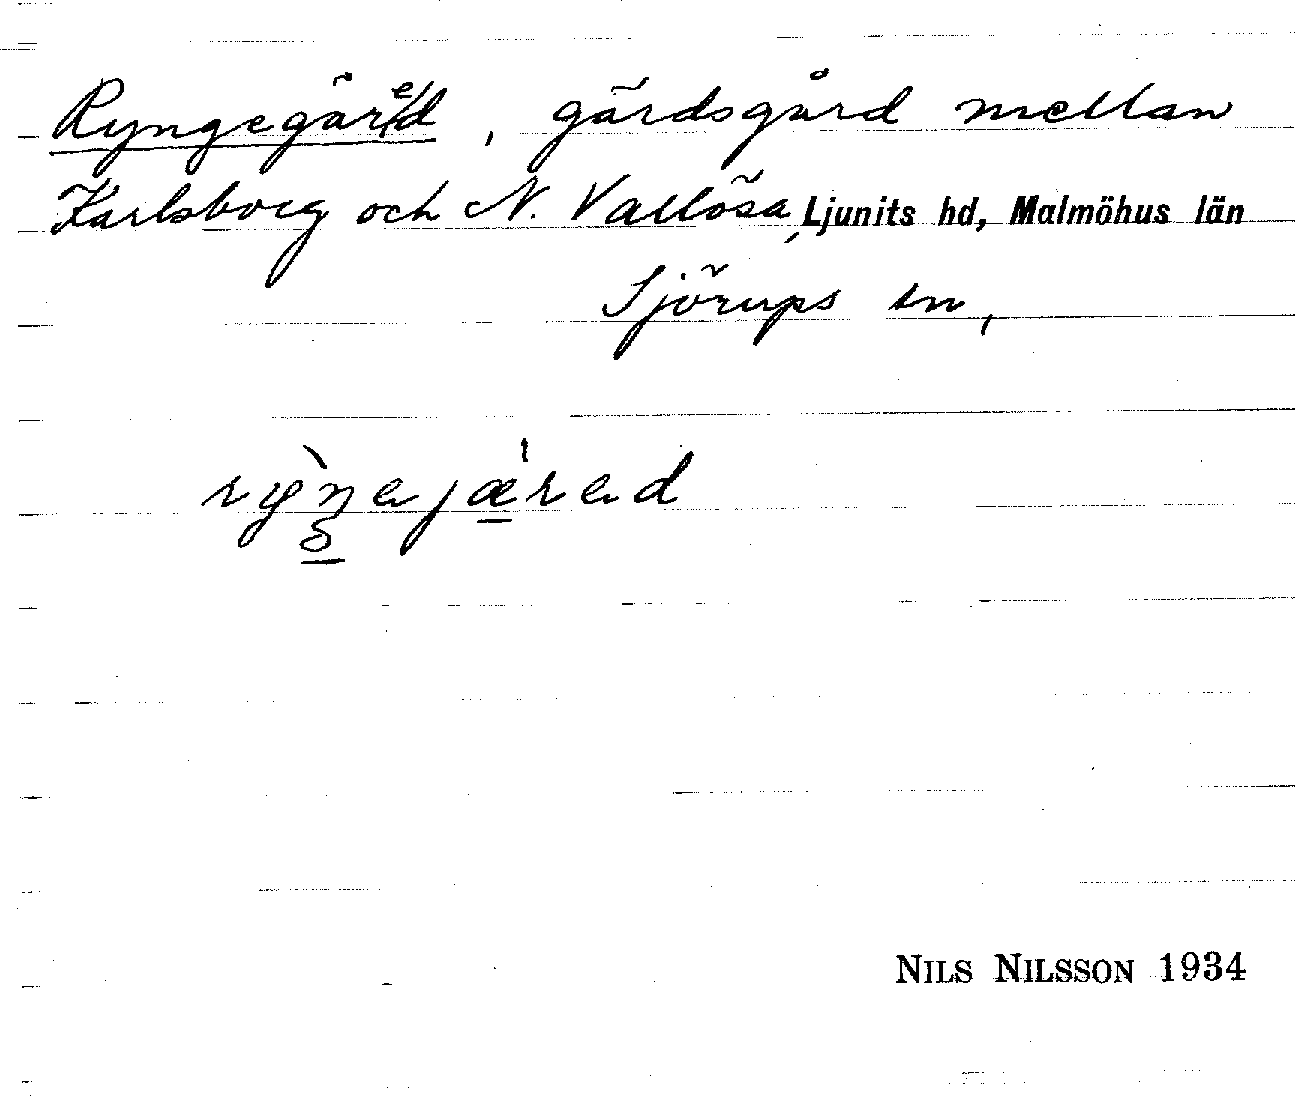 Ryngegär(e)d, gärdsgård mellan
Karlsborg och N. Vallösa, Ljunits hd, Malmöhus län
Sjörups sn,
NILS NILSSON 1934